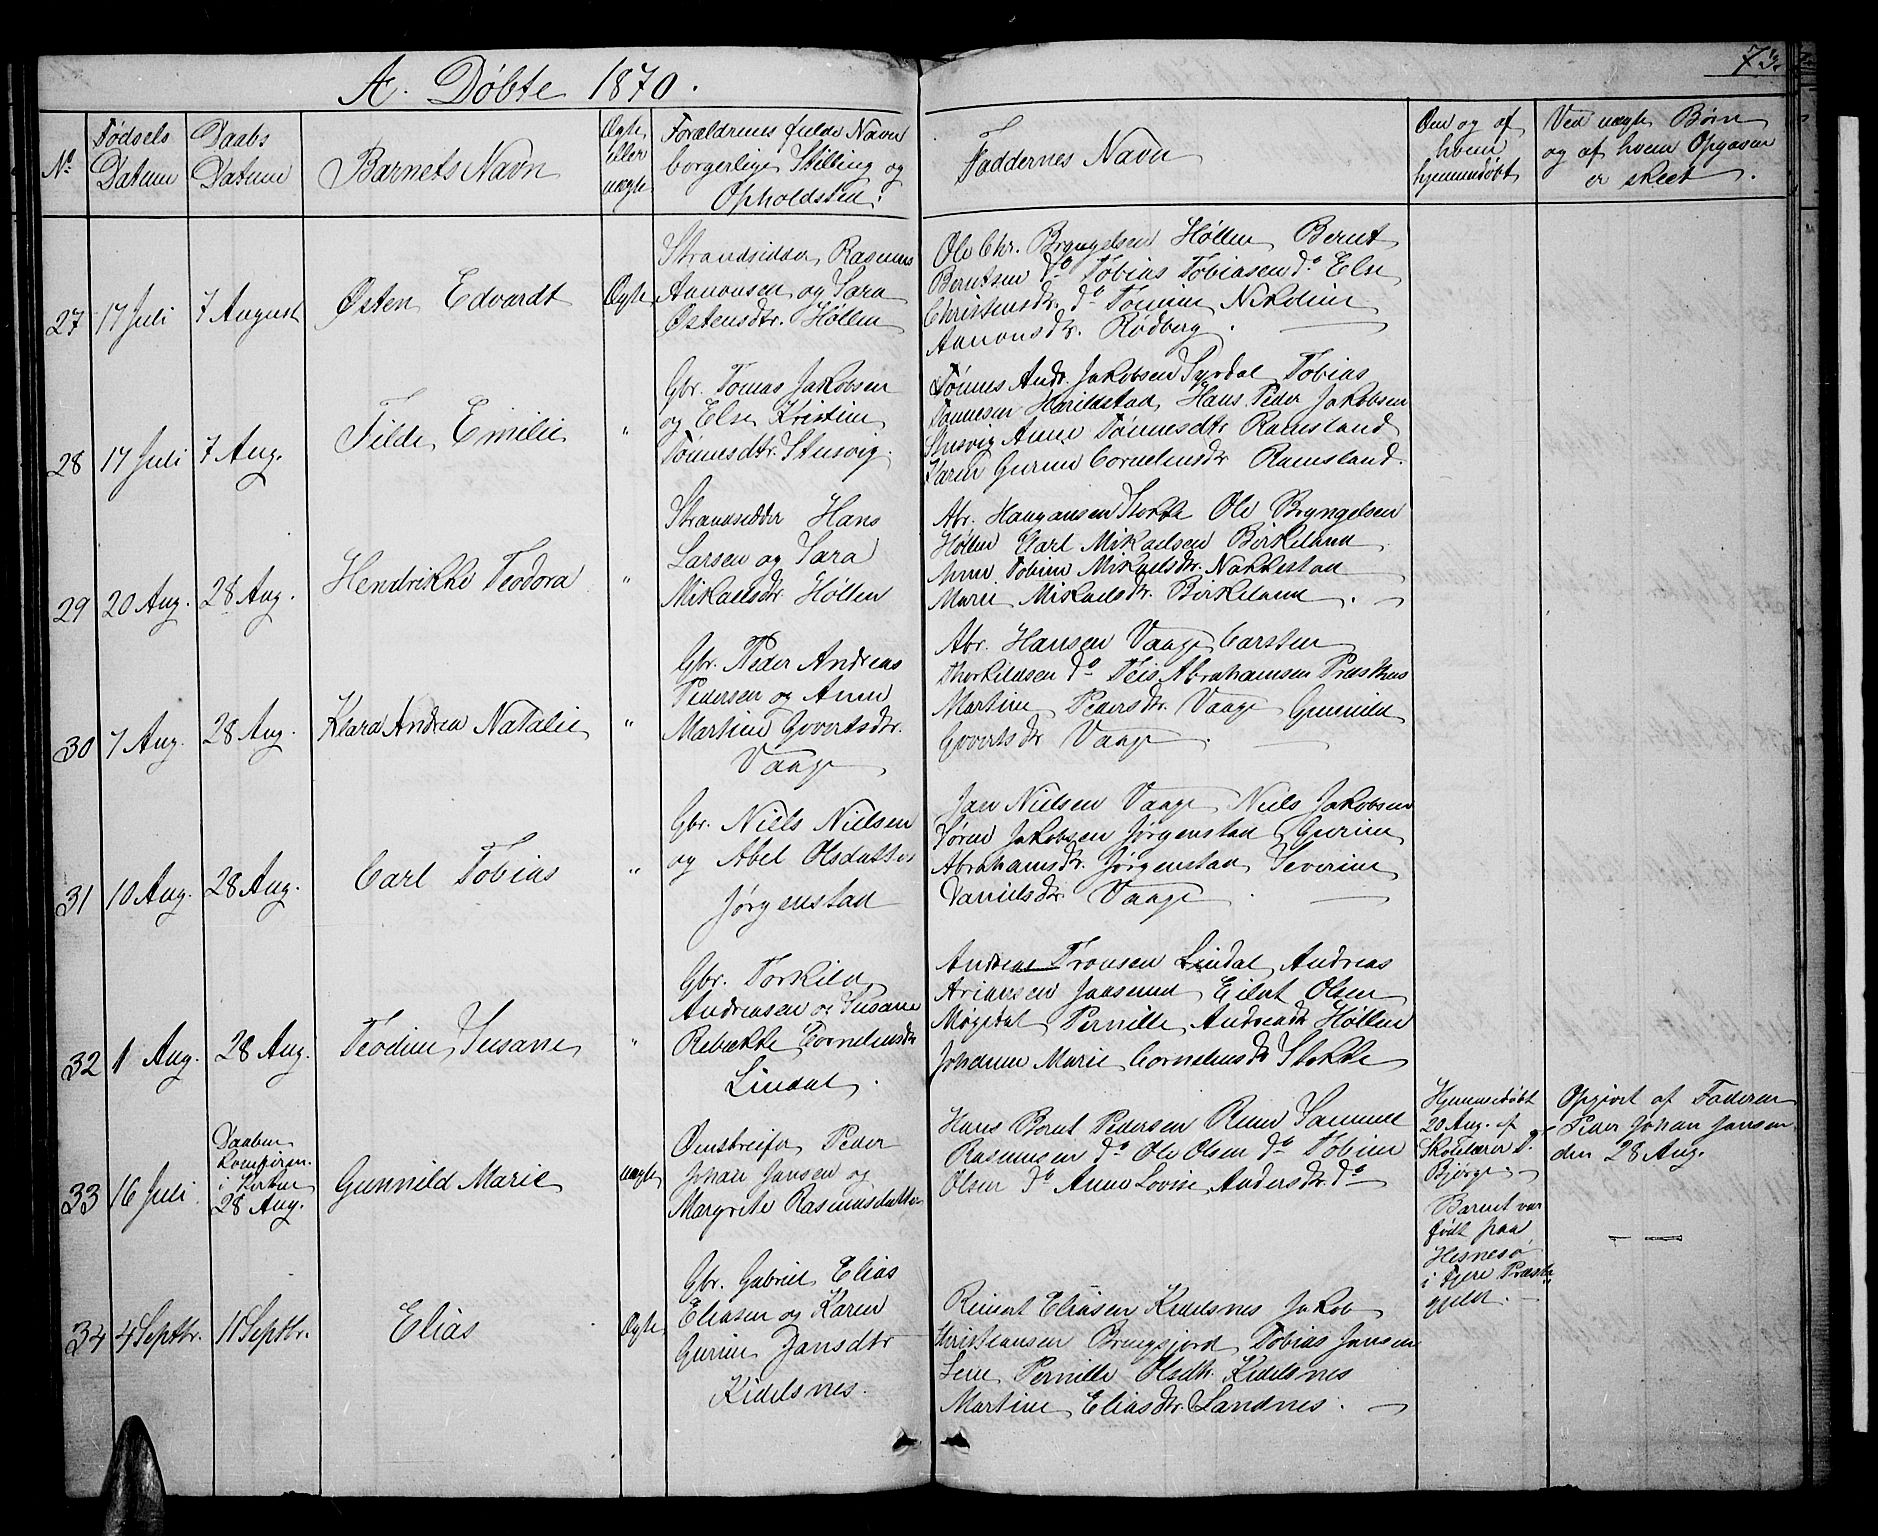 A. Døbte 1870.
73.
No.
Fødsels Datum
Daabs Datum
Barnets Navn
Ægte eller uægte
Forældrenes fulde Navn
borgerlige Stilling og
Opholdsted.
Faddernes Navn
Om og af
hvem
hjemmedøbt
Ved uægte Børn
og af hvem Opgaven
er skeet.
27 17 Juli 7 August Østen Edvardt Ægte
Strandsidder Rasmus
Aanonsen og Sara
Østensdtr. Høllen
Ole Chr. Bryngelsen Høllen Bernt
Berntsen do Tobias Tobiasen do Else
Christensdtr. do Tomine Nikoline
Aanonsdtr. Rødberg.
28 17 Juli 7 Aug. Tilde Emilie "
Gbr. Tomas Jakobsen
og Else Kristine
Tønnesdtr. Stusvig.
Tønnes Andr. Jakobsen Syrdal Tobias
Tønnesen Harildstad Hans Peder Jakobsen
Stusvig Anne Tønnesdtr Ramsland
Karen Gurine Corneliusdtr Ramsland.
29 20 Aug. 28 Aug. Hendrikke Teodora "
Strandsidder Hans
Larsen og Sara
Mikaelsdtr Høllen
Abr. Haagansen Stokke Ole Bryngelsen
Høllen Carl Mikaelsen Birkeland
Anne Tobine Mikaelsdtr. Nakkestad
Maren Mikaelsdtr. Birkeland.
30 7 Aug. 28 Aug. Klara Andrea Natalie "
Gbr. Peder Andreas
Pedersen og Anne
Martine Govertsdtr.
Vaage
Abr. Hansen Vaage Carsten
Thorkildsen do Teis Abrahamsen Præsthus
Martine Pedersdtr. Vaage Gunnild
Govertsdtr Vaage.
31 10 Aug. 28 Aug. Carl Tobias "
Gbr. Niels Nielsen
og Abel Olsdatter
Jørgenstad
Jan Nielsen Vaage Niels Jakobsen
Søren Jakobsen Jørgenstad Gurine
Abrahamsdtr. Jørgenstad Severine
Danielsdtr. Vaage.
32 1 Aug. 28 Aug. Teodine Susane "
Gbr. Torkild
Andreasen og Susane
Rebekke Corneliusdtr
Lindal.
Andreas Tronsen Lindal Andreas
Ariansen Jaasund Eilert Olsen
Møgedal Pernille Andreasdtr Høllen
Johanne Marie Corneliusdtr Stokke
33 16 Juli
Daaben
Confirm.
i Kirken
28 Aug.
Gunnild Marie uægte
Omstreifer Peder
Johan Jansen og
Margrete Rasmusdatter
Hans Bernt Pedersen Samuel
Rasmussen do Ole Olsen do Tobine
Olsen do Anne Lovise Andersdtr. do
Hjemmedøbt
20 Aug. af
Skolelærer
Bjørge
Barnet var
født paa
Hesnesø
i Fjere Præste-
gjeld.
Opgivet af Faderen
Peder Johan Jansen
den 28 Aug.
34 4 Septbr. 11 Septbr. Elias Ægte
Gbr. Gabriel Elias
Eliasen og Karen
Gurine Jansdtr
Kidelsnes.
Reinert Eliasen Kidelsnes Jakob
Christiansen Bringsjord Tobias Jansen
Leire Pernille Olsdtr. Kidelsnes
Martine Eliasdtr. Sandnes.